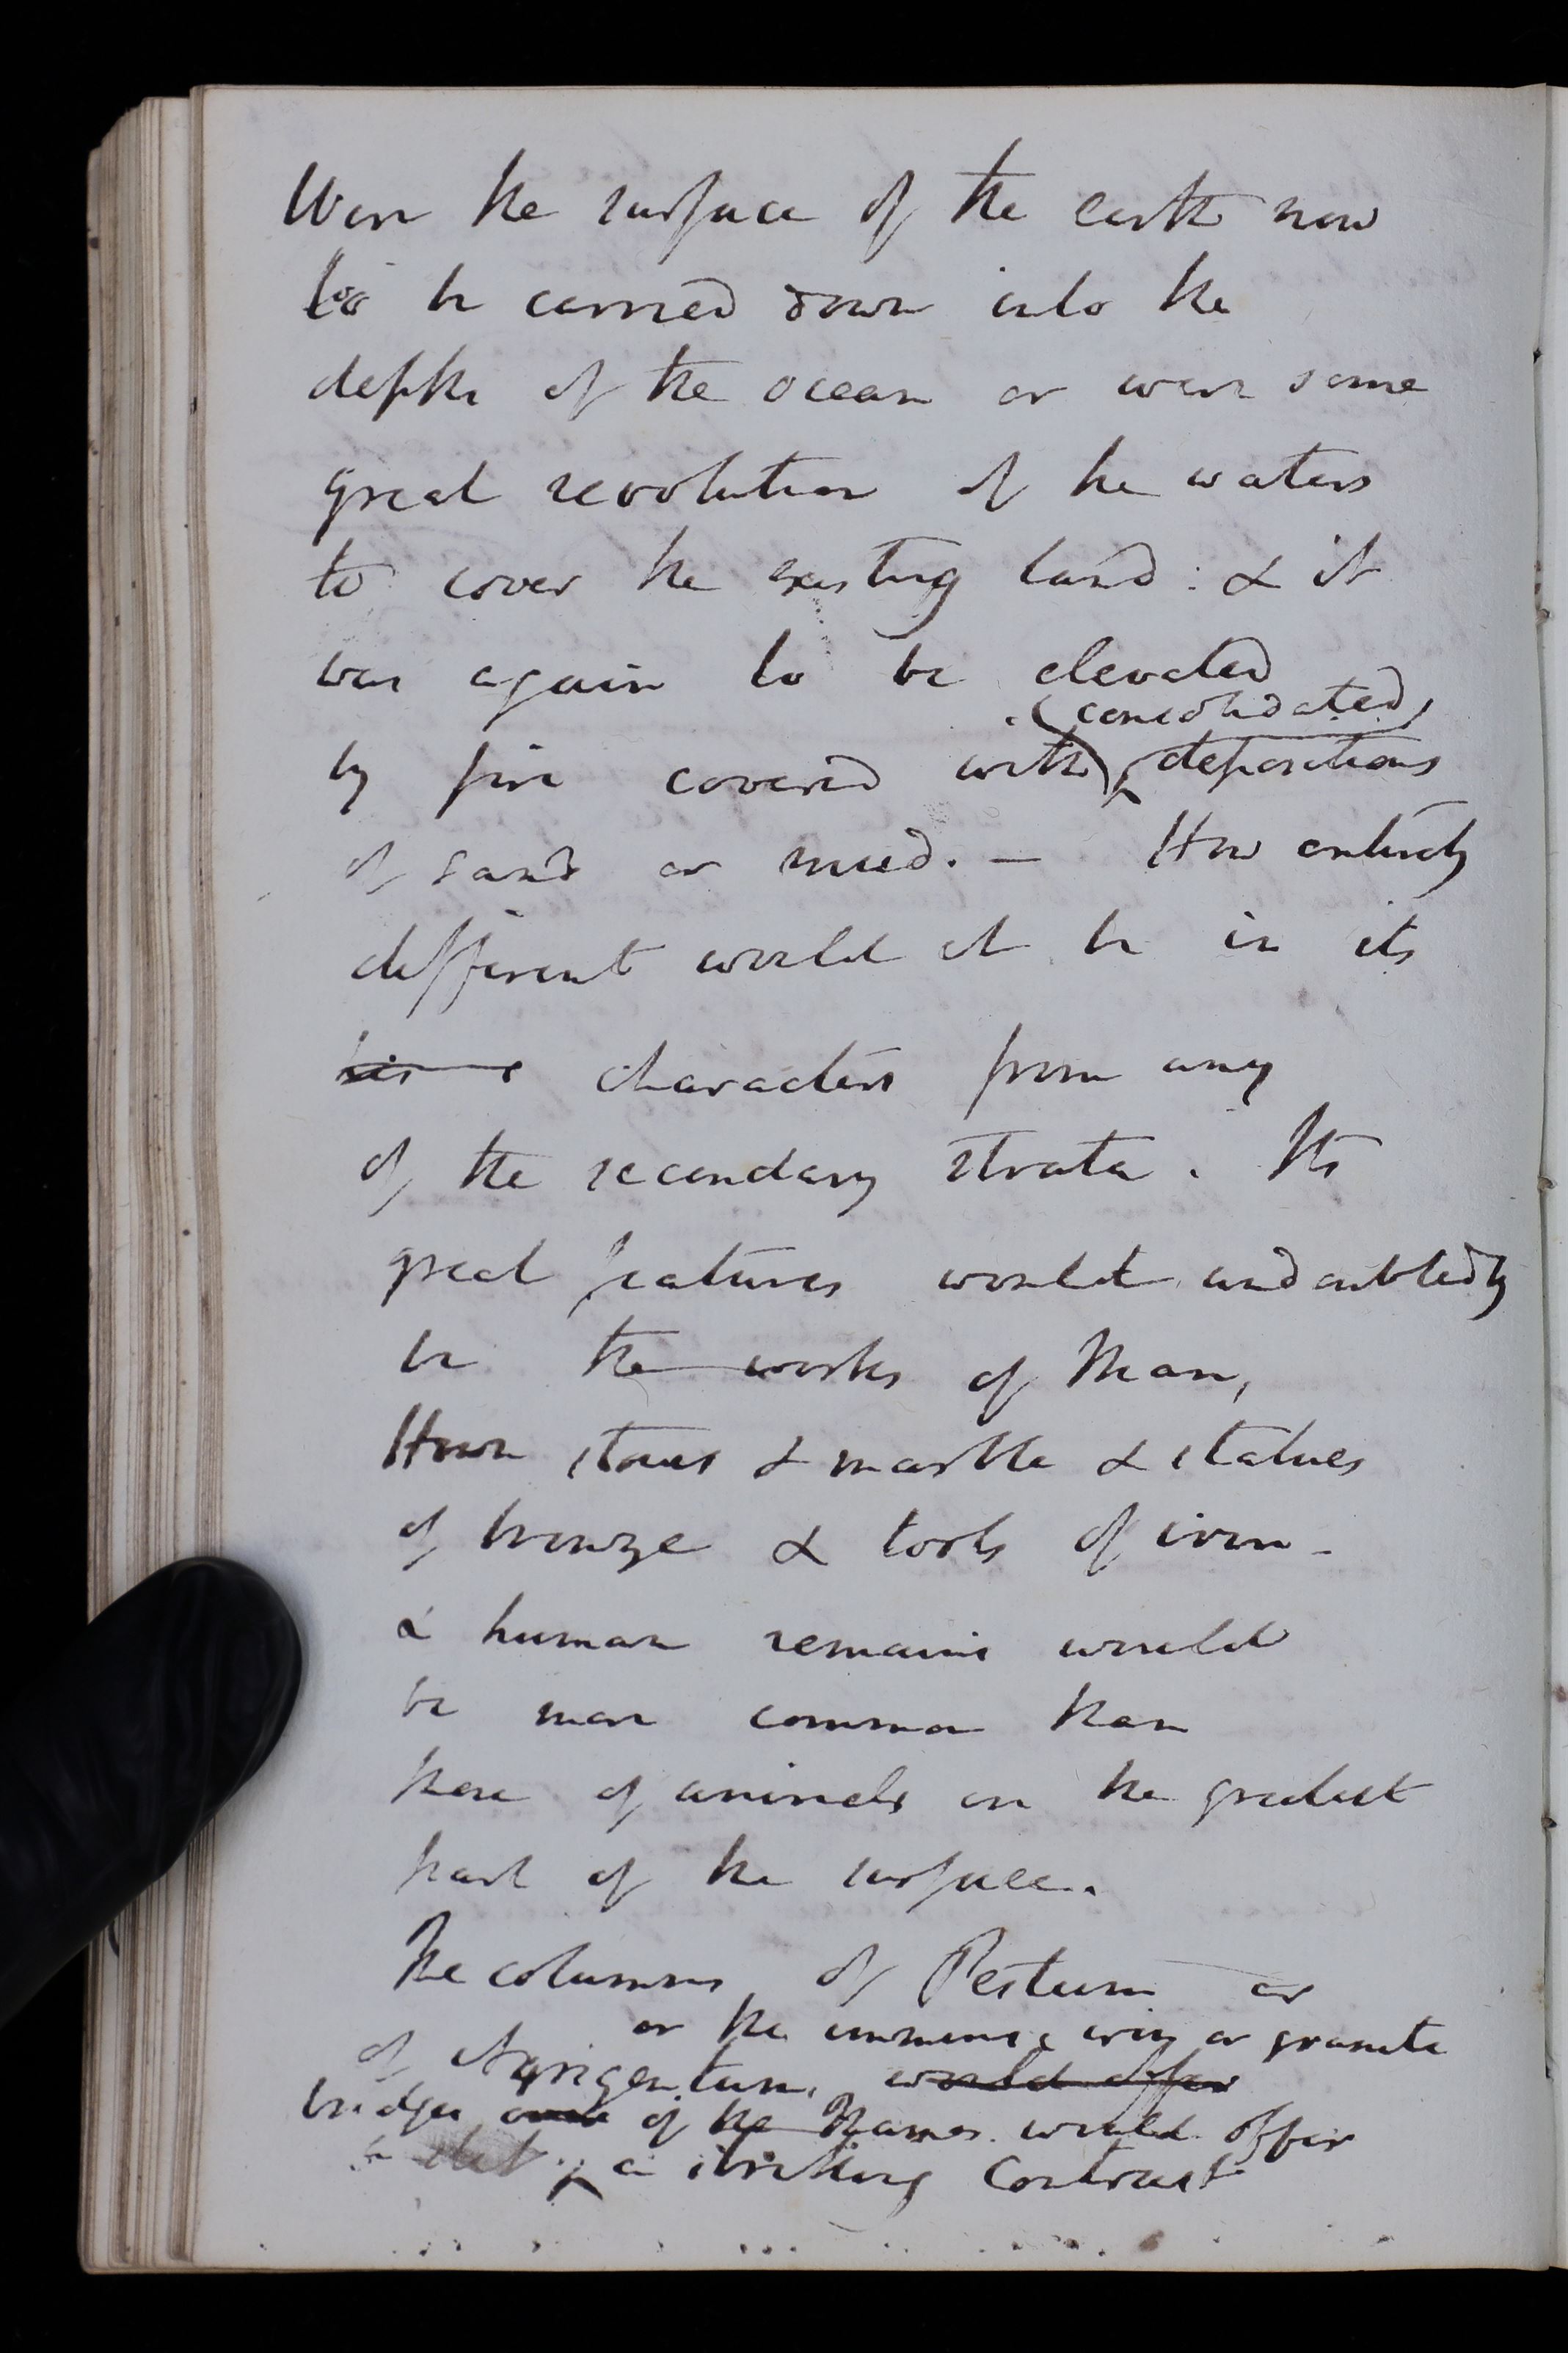 Were the surface of the earth now
to be carried down into the
depths of the ocean or were some
great revolution of the waters
to cover the existing land: & it
was again to be elevated
(consolidated)
by fire covered with depositions
of sand or mud. — How entirely
different would it be in its
characters from any
of the secondary strata. Its
great features would undoubtedly
be the works of Man,
Hewn stones & marble & statues
of bronze & tools of iron -
& human remains would
be more common than
those of animals on the greatest
part of the surface.
The columns of Pestum or
or the immense iron or granite
of Agrigentum, would offer
bridges over of the Thames would offer
a striking Contrast